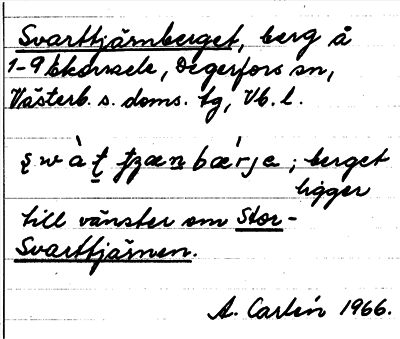 Svarttjärnberget, berg å
1-9 Ekorrsele, Degerfors sn,
Västerb. s. doms. tg, Vb. l.
berget
ligger
till vänster om Stor-
Svarttjärnen.
A. Carlén 1966.